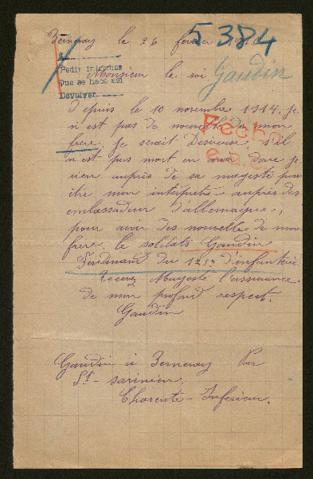 5384
le 26
Pedir informes
Que se hace así
Devolver
Monsieur le roi Gaudin
depuis le 10 novembre 1914 je
n'est pas de nouvelle de mon
frere, je serait Desireuse s'il
n'est pas mort en
vien auprès de sa magesté pour
etre mon interprete auprés des
embassadeur d'allemagne,
pour avoir des nouvelle de mon
frere le soldats Gaudin
Ferdinand du d'infanterie
Recevez Magesté l'assurance
de mon profond respect.
Gaudin
Gaudin à Bernewy Par
St-savinien
Charente-Inferieur.